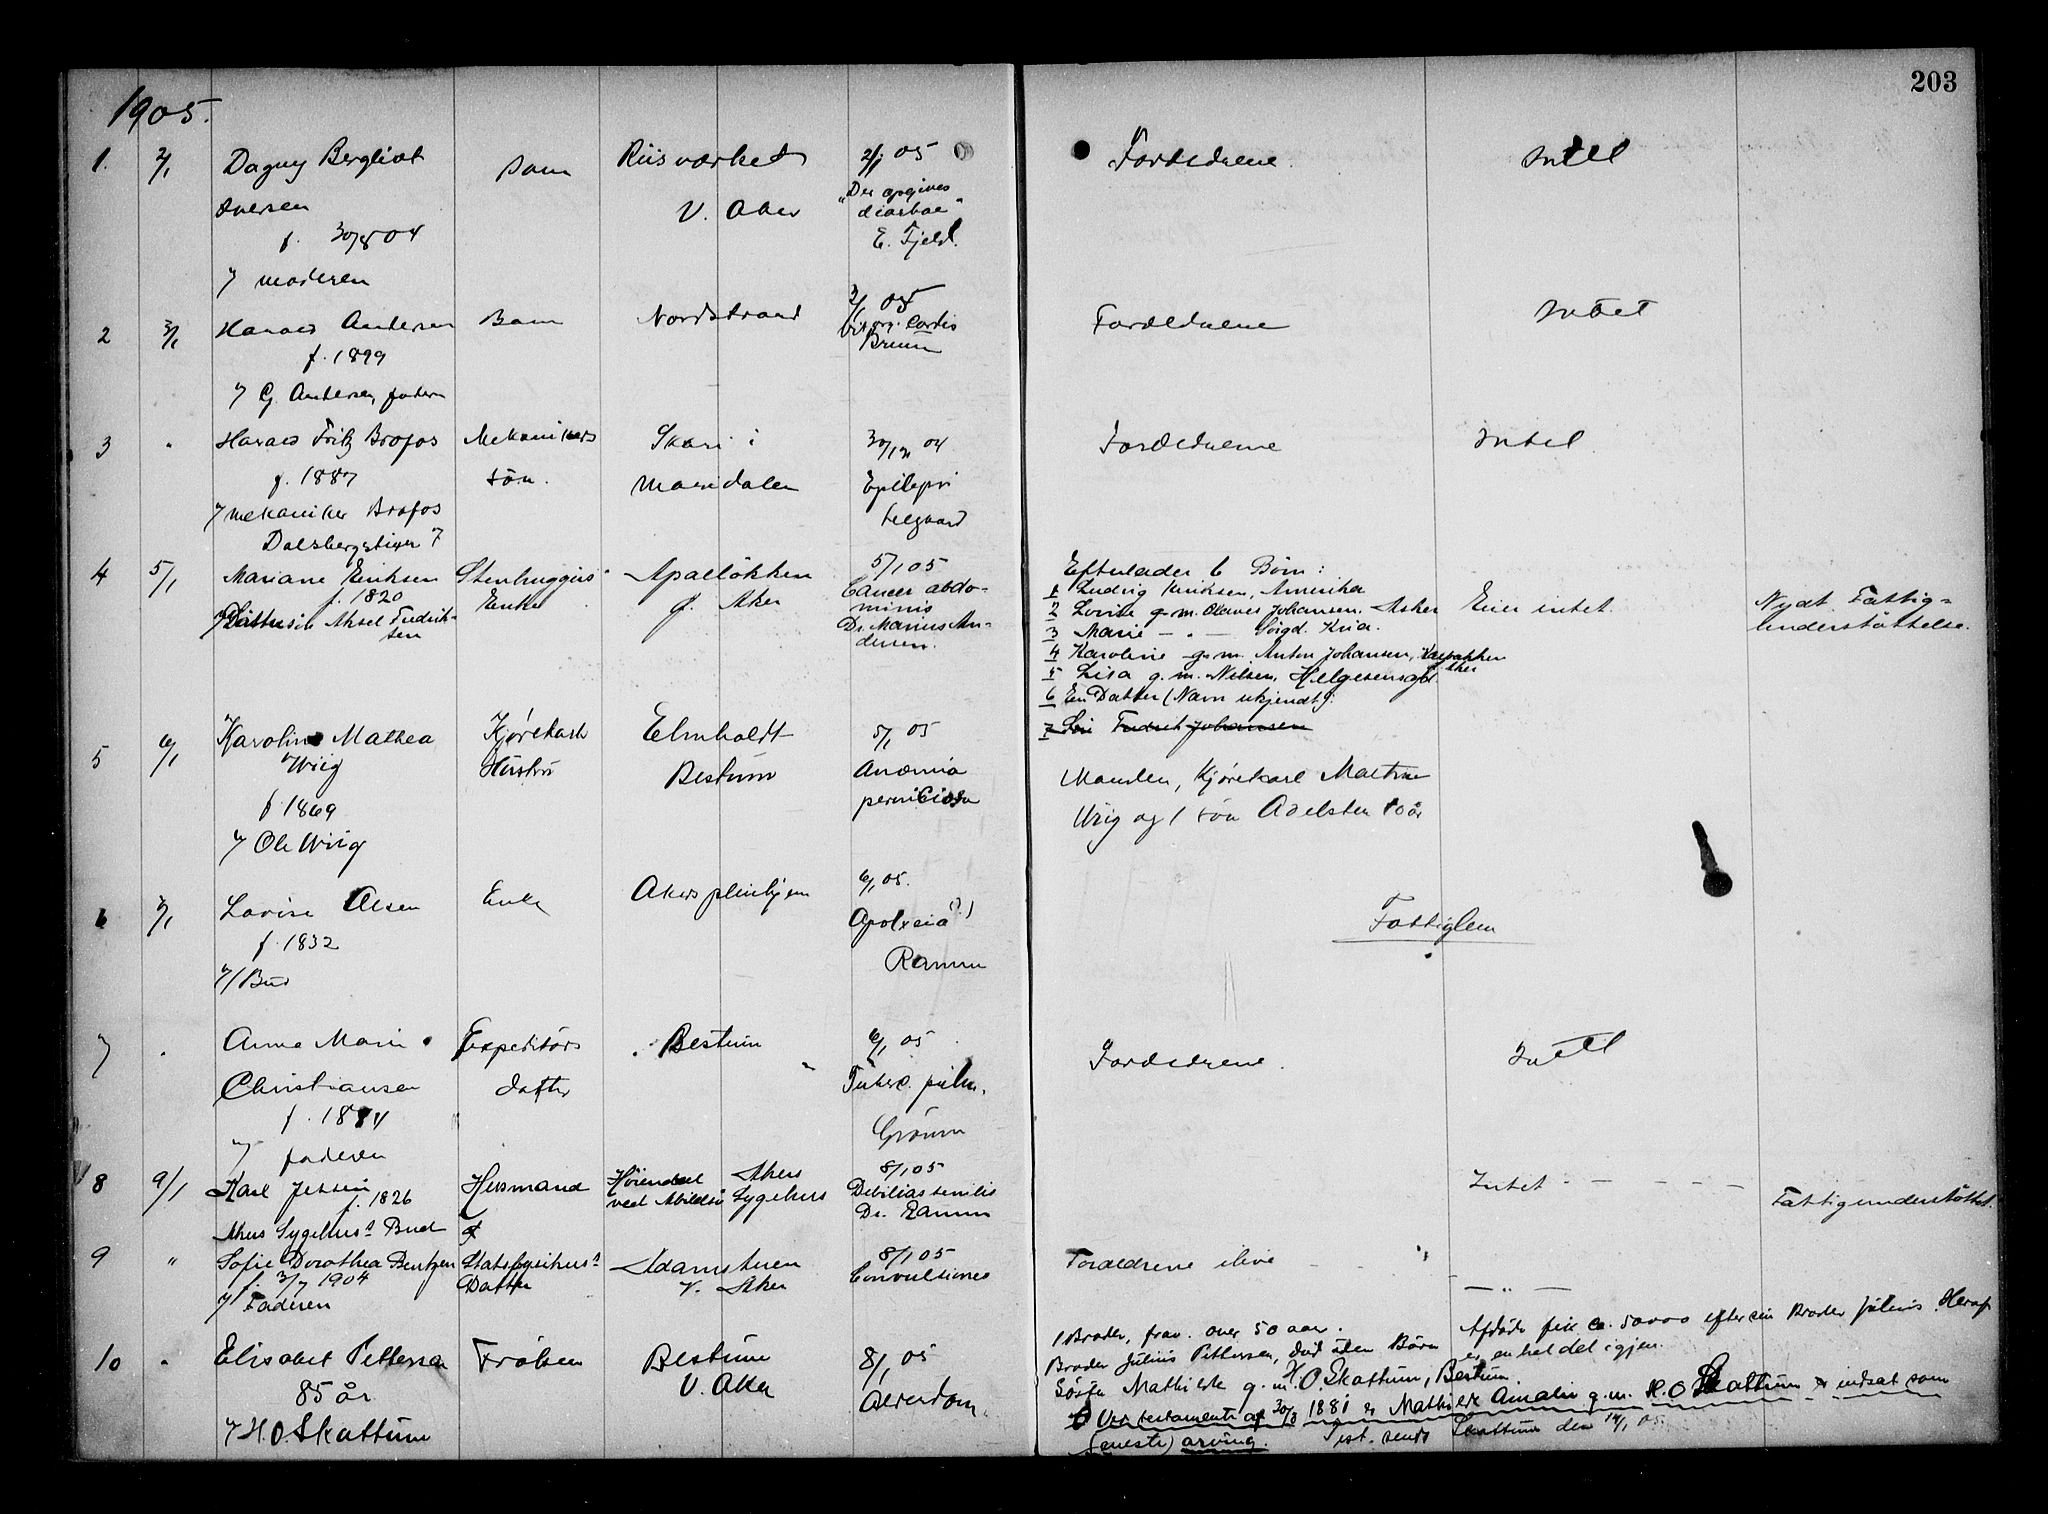 203
1905.
1. 2/1 Dagny Bergliot Barn Riisværket 2/1 05 Forældrene. Intet
Iversen V. Aker "Der opgives
f. 30/8 04 diarhoe"
E. Fjeld.
v/ moderen
2 3/1 Harald Andersen Barn Nordstrand 2/1 05 Forældrene Intet
f. 1899 Vit. org. Cordis
Bruun
v/ G. Andersen, faderen
3 " Harald Fritz Brofos Mekanikers Skari i 30/12 04 Forældrene Intet.
f. 1887 søn. Maridalen Epilepsi
v/ mekaniker Brofos
Dalsbergstien 7
4 5/1 Mariane Eriksen Stenhuggers Apalløkken 5/1 05 Efterlader 6 Børn:
f. 1820 Enke Ø. Aker Cancer abdo-
v/ Aksel Fredrik-
sen minis
Dr. Marius An-
dersen.
1 Ludvig Eriksen, Amerika
2 Lovise g. m. Olaves Johansen. Asker Eier intet. Nydt Fattig-
understøttelse.
3 Marie — " — Sørgd. Kria.
4 Karoline g. m. Anton Johansen,
5 Lisa g. m. Nilsen, Helgesensgd.
6 En Datter (Navn ukjendt).
7 Fredrik Johansen
5 6/1 Karoline Mathea Kjørekarls Elmholdt 5/1 05
Wiig Hustru Bestum Anæmia
f. 1869 perniciosa
v/ Ole Wiig
Manden, Kjørekarl Martin
Wiig og 1 søn Adelsten 10 år
6 7/1 Lovise Olsen Enke Akers pleiehjem 6/1 05.
f. 1832 Apoplexia (?) Fattiglem
v/ Bud Ramm
7 " Anna Marie Expeditørs Bestum 6/1 05 Forældrene. Intet
Christiansen datter " Tuberc. pulm.
f. 1884 Grönn
v/ faderen
8 9/1 Karl Jensen Husmand Akers 8/1 05 Intet - - - - -
f. 1826 ved Abildsø Sygehus Debilitas senilis Fattigunderstøttet.
Dr. Ramm
Akers Sygehus's Bud
9 " Sofie Dorothea Bentzen Statsfysikus's Adamstuen 8/1 05 Forældrene ilive
f. 3/7 1904 Datter V. Aker Convulsiones — " —
v/ Faderen
10 " Elisabet Pettersen Frøken Bestum 8/1 05
85 år V. Aker Alderdom.
v/ H. O. Skattum
1 Broder, frav. over 50 aar. Afdøde fik ca. 50000 efter sin Broder Julius. Heraf
Broder Julius Pettersen, død uden Børn er en hel del igjen.
Søster Mathilde g. m. H. O. Skattum, Bestum.
Ved testamente af 30/8 1881 er Mathilde Amalie g. m. H. O. Skattum indsat som
(eneste) arving. Test. sendt Skattum den 14/1 05.